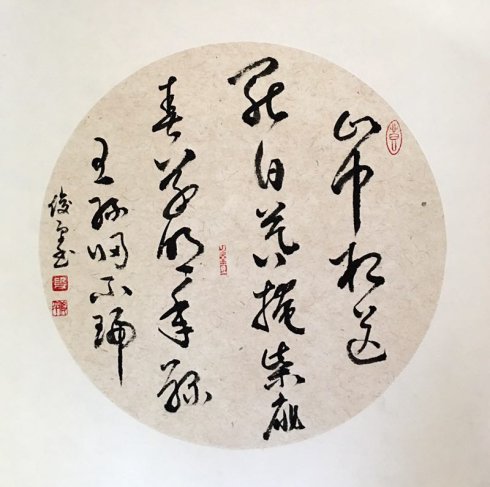 山中相送
罷日暮掩柴扉
春草明年綠
王孫歸不歸